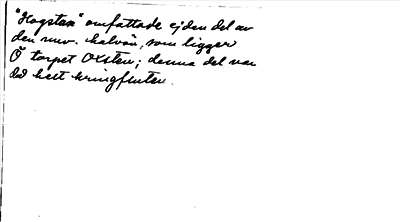 "Hogstan" omfattade ej den del av
den nuv. halvön, som ligger
Ö torpet Oxsten; denna del var
då helt kringfluten.